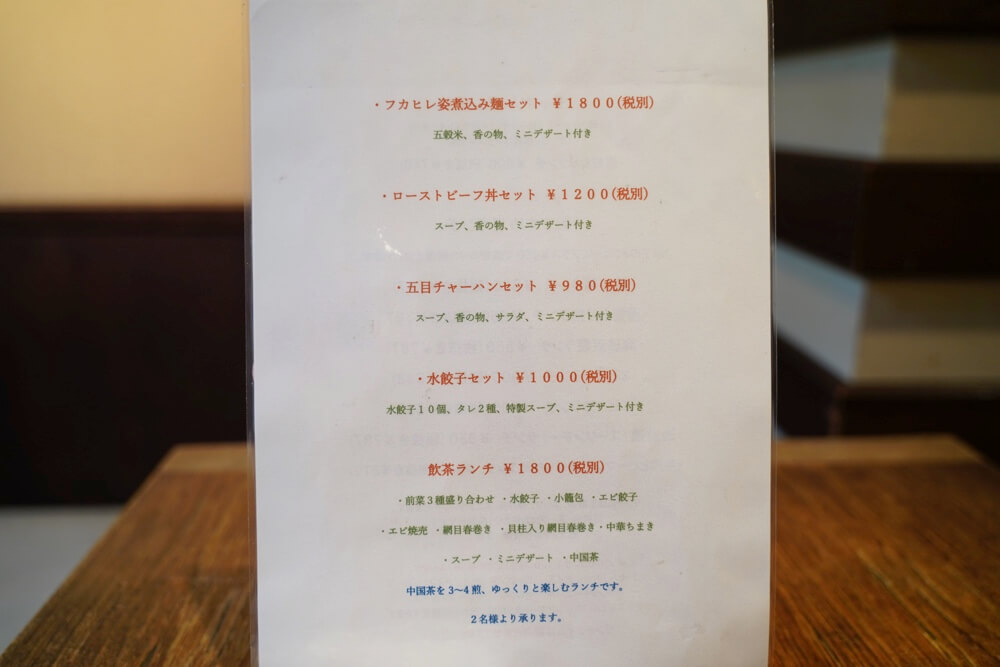 ・フカヒレ姿煮込み麺セット ￥１８００(税別)
五穀米、香の物、ミニデザート付き
・ローストビーフ丼セット ￥１２００(税別)
スープ、香の物、ミニデザート付き
・五目チャーハンセット ￥９８０(税別)
スープ、香の物、サラダ、ミニデザート付き
・水餃子セット ￥１０００(税別)
水餃子１０個、タレ２種、特製スープ、ミニデザート付き
飲茶ランチ ￥１８００(税別)
・前菜３種盛り合わせ ・水餃子 ・小籠包 ・エビ餃子
・エビ焼売 ・網目春巻き ・貝柱入り網目春巻き・中華ちまき
・スープ ・ミニデザート ・中国茶
中国茶を３～４煎、ゆっくりと楽しむランチです。
２名様より承ります。